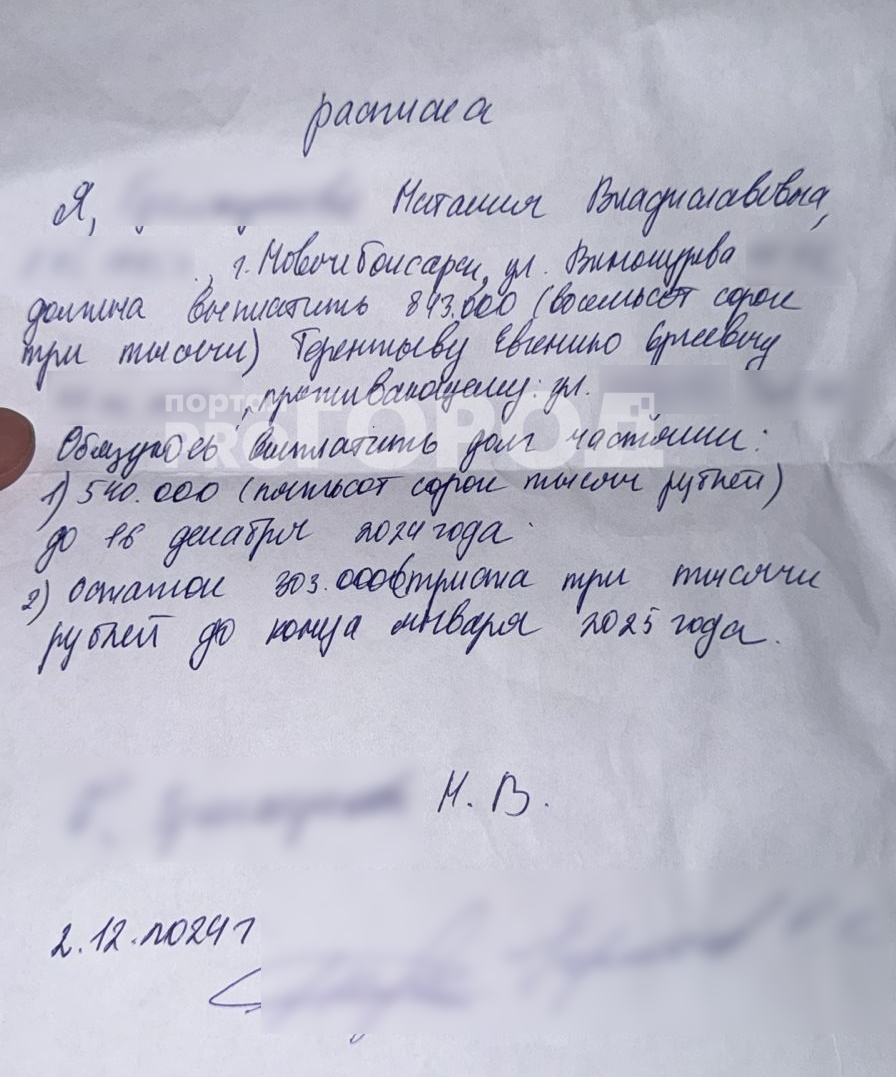 расписка
Я, Наталия Владиславовна,
, г. Новочебоксарск, ул. Винокурова
должна выплатить 843.000 (восемьсот сорок
три тысячи) Терентьеву Евгению
, проживающему: ул.
портал
PRO ГОРОД
Обязуюсь выплатить долг частями:
1) 540.000 (пятьсот сорок тысяч рублей)
до 16 декабря 2024 года.
2) Остаток 303.000 (триста три тысячи
рублей до конца января 2025 года.
Н. В.
2.12.2024 г